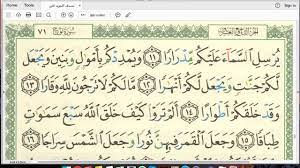 ٧١
يُرْسِلِ ٱلسَّمَآءَ عَلَيْكُم مِّدْرَارًا ١١ وَيُمْدِدْكُم بِأَمْوَٰلٍ وَبَنِينَ وَيَجْعَل
لَّكُمْ جَنَّٰتٍ وَيَجْعَل لَّكُمْ أَنْهَٰرًا ١٢ مَّا لَكُمْ لَا تَرْجُونَ لِلَّهِ وَقَارًا ١٣
وَقَدْ خَلَقَكُمْ أَطْوَارًا ١٤ أَلَمْ تَرَوْا۟ كَيْفَ خَلَقَ ٱللَّهُ سَبْعَ سَمَٰوَٰتٍ
طِبَاقًا ١٥ وَجَعَلَ ٱلْقَمَرَ فِيهِنَّ نُورًا وَجَعَلَ ٱلشَّمْسَ سِرَاجًا ١٦